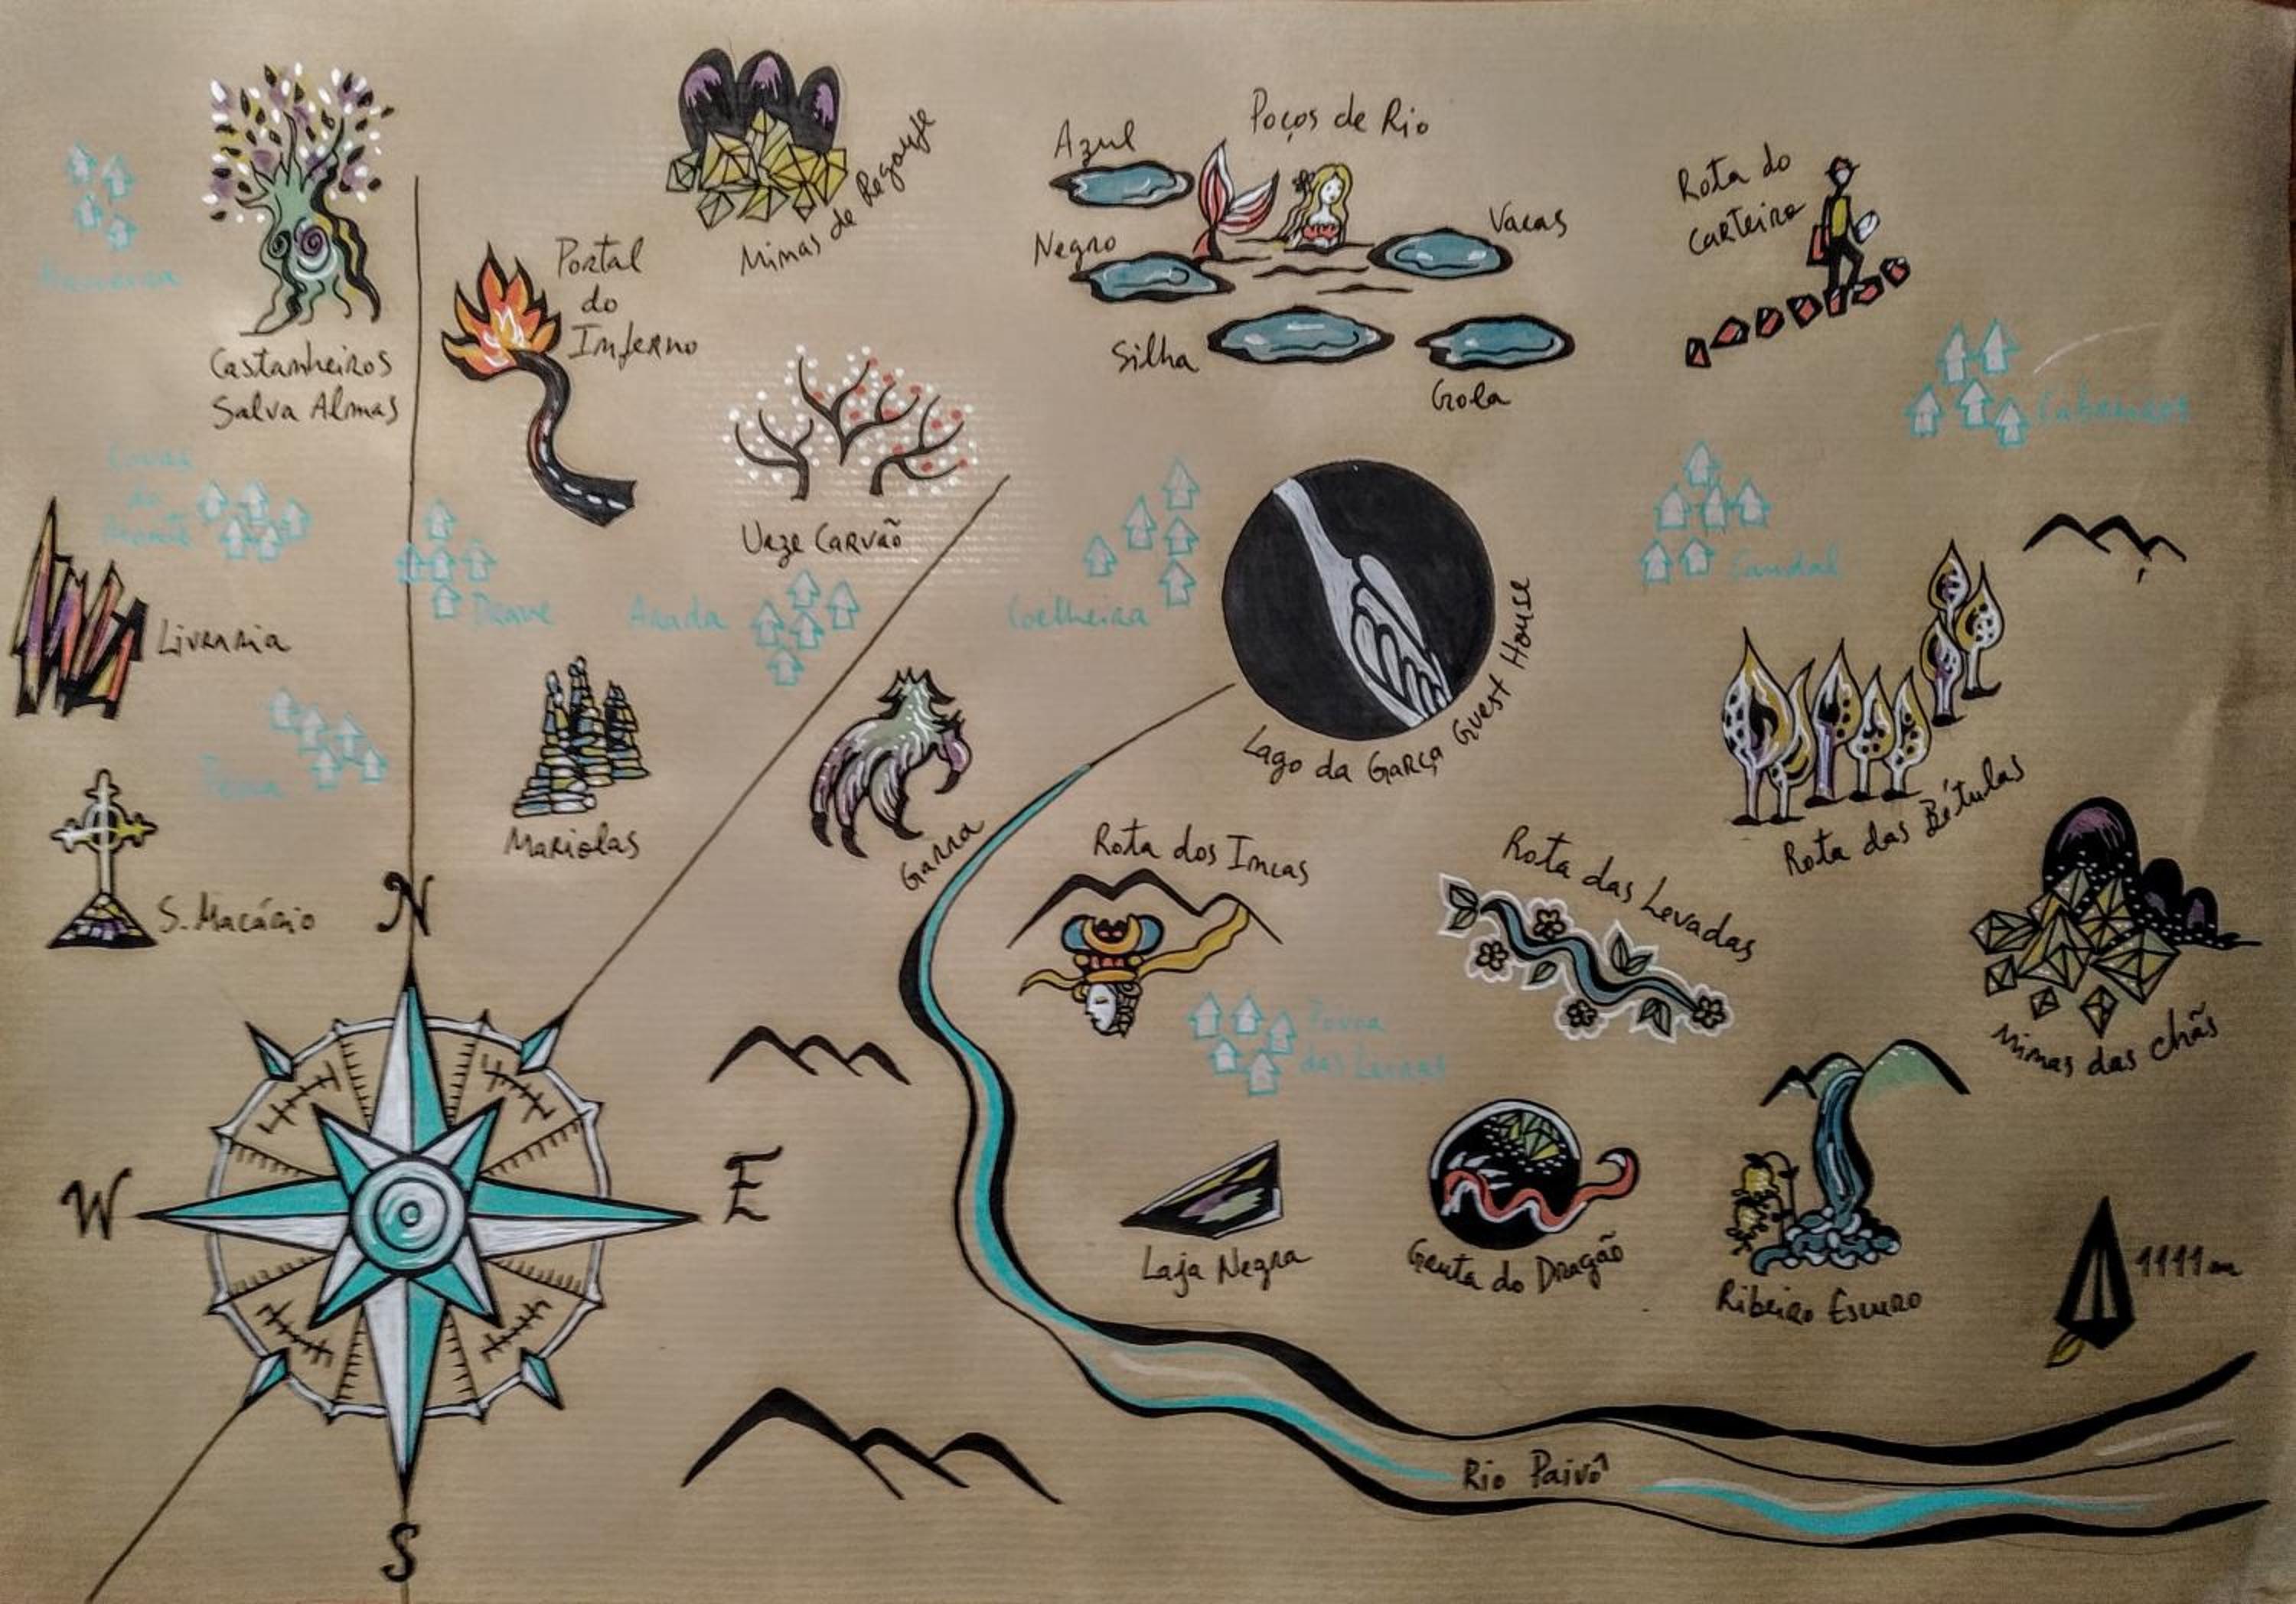 Azul
Poços de Rio
Minas de Regoufe
Rota do
carteiro
Vacas
Negro
Portal
do
Inferno
Silha
Gola
Castanheiros
Salva Almas
Cabreiros
Covas
do
Monte
Urze Carvão
Candal
Drave
Arada
Coelheira
Livraria
Lago da Garça Guest House
Pena
Mariolas
Garra
Rota das Bétulas
Rota dos Incas
Rota das Levadas
S. Macário
N
Póvoa
das Leiras
Minas das Chãs
W
E
Laja Negra
Gruta do Dragão
Ribeiro Escuro
1111 m
Rio Paivô
S